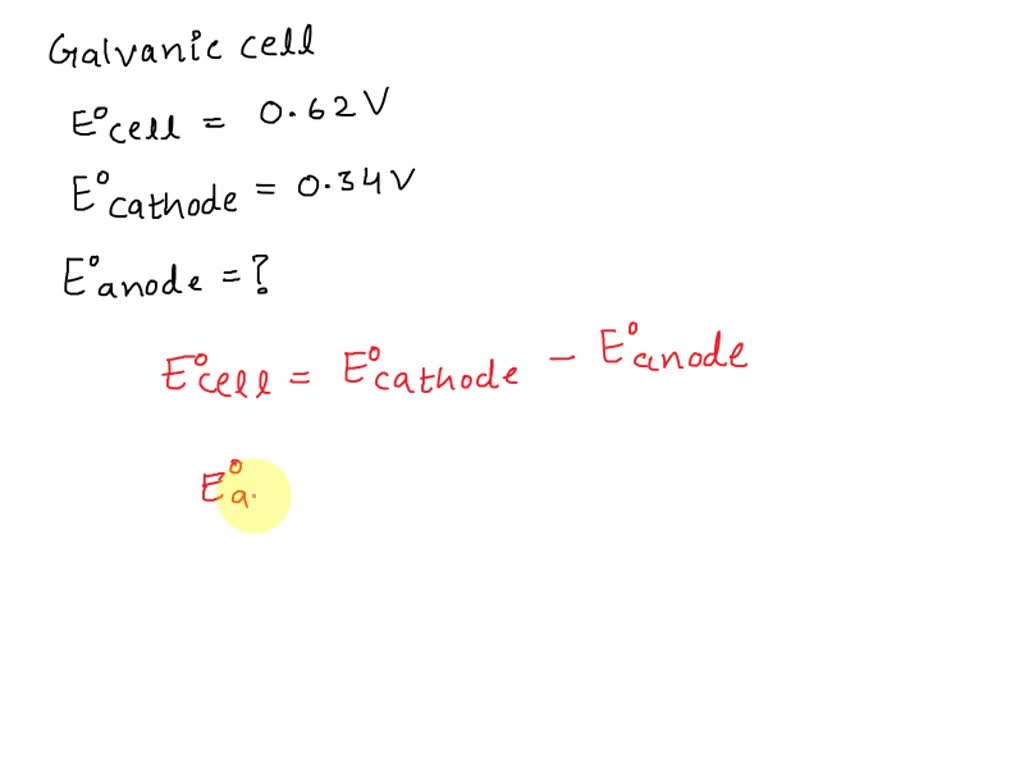 Galvanic cell
E°cell = 0.62V
E°cathode = 0.34V
E°anode = ?
E°cell = E°cathode - E°anode
E°a.